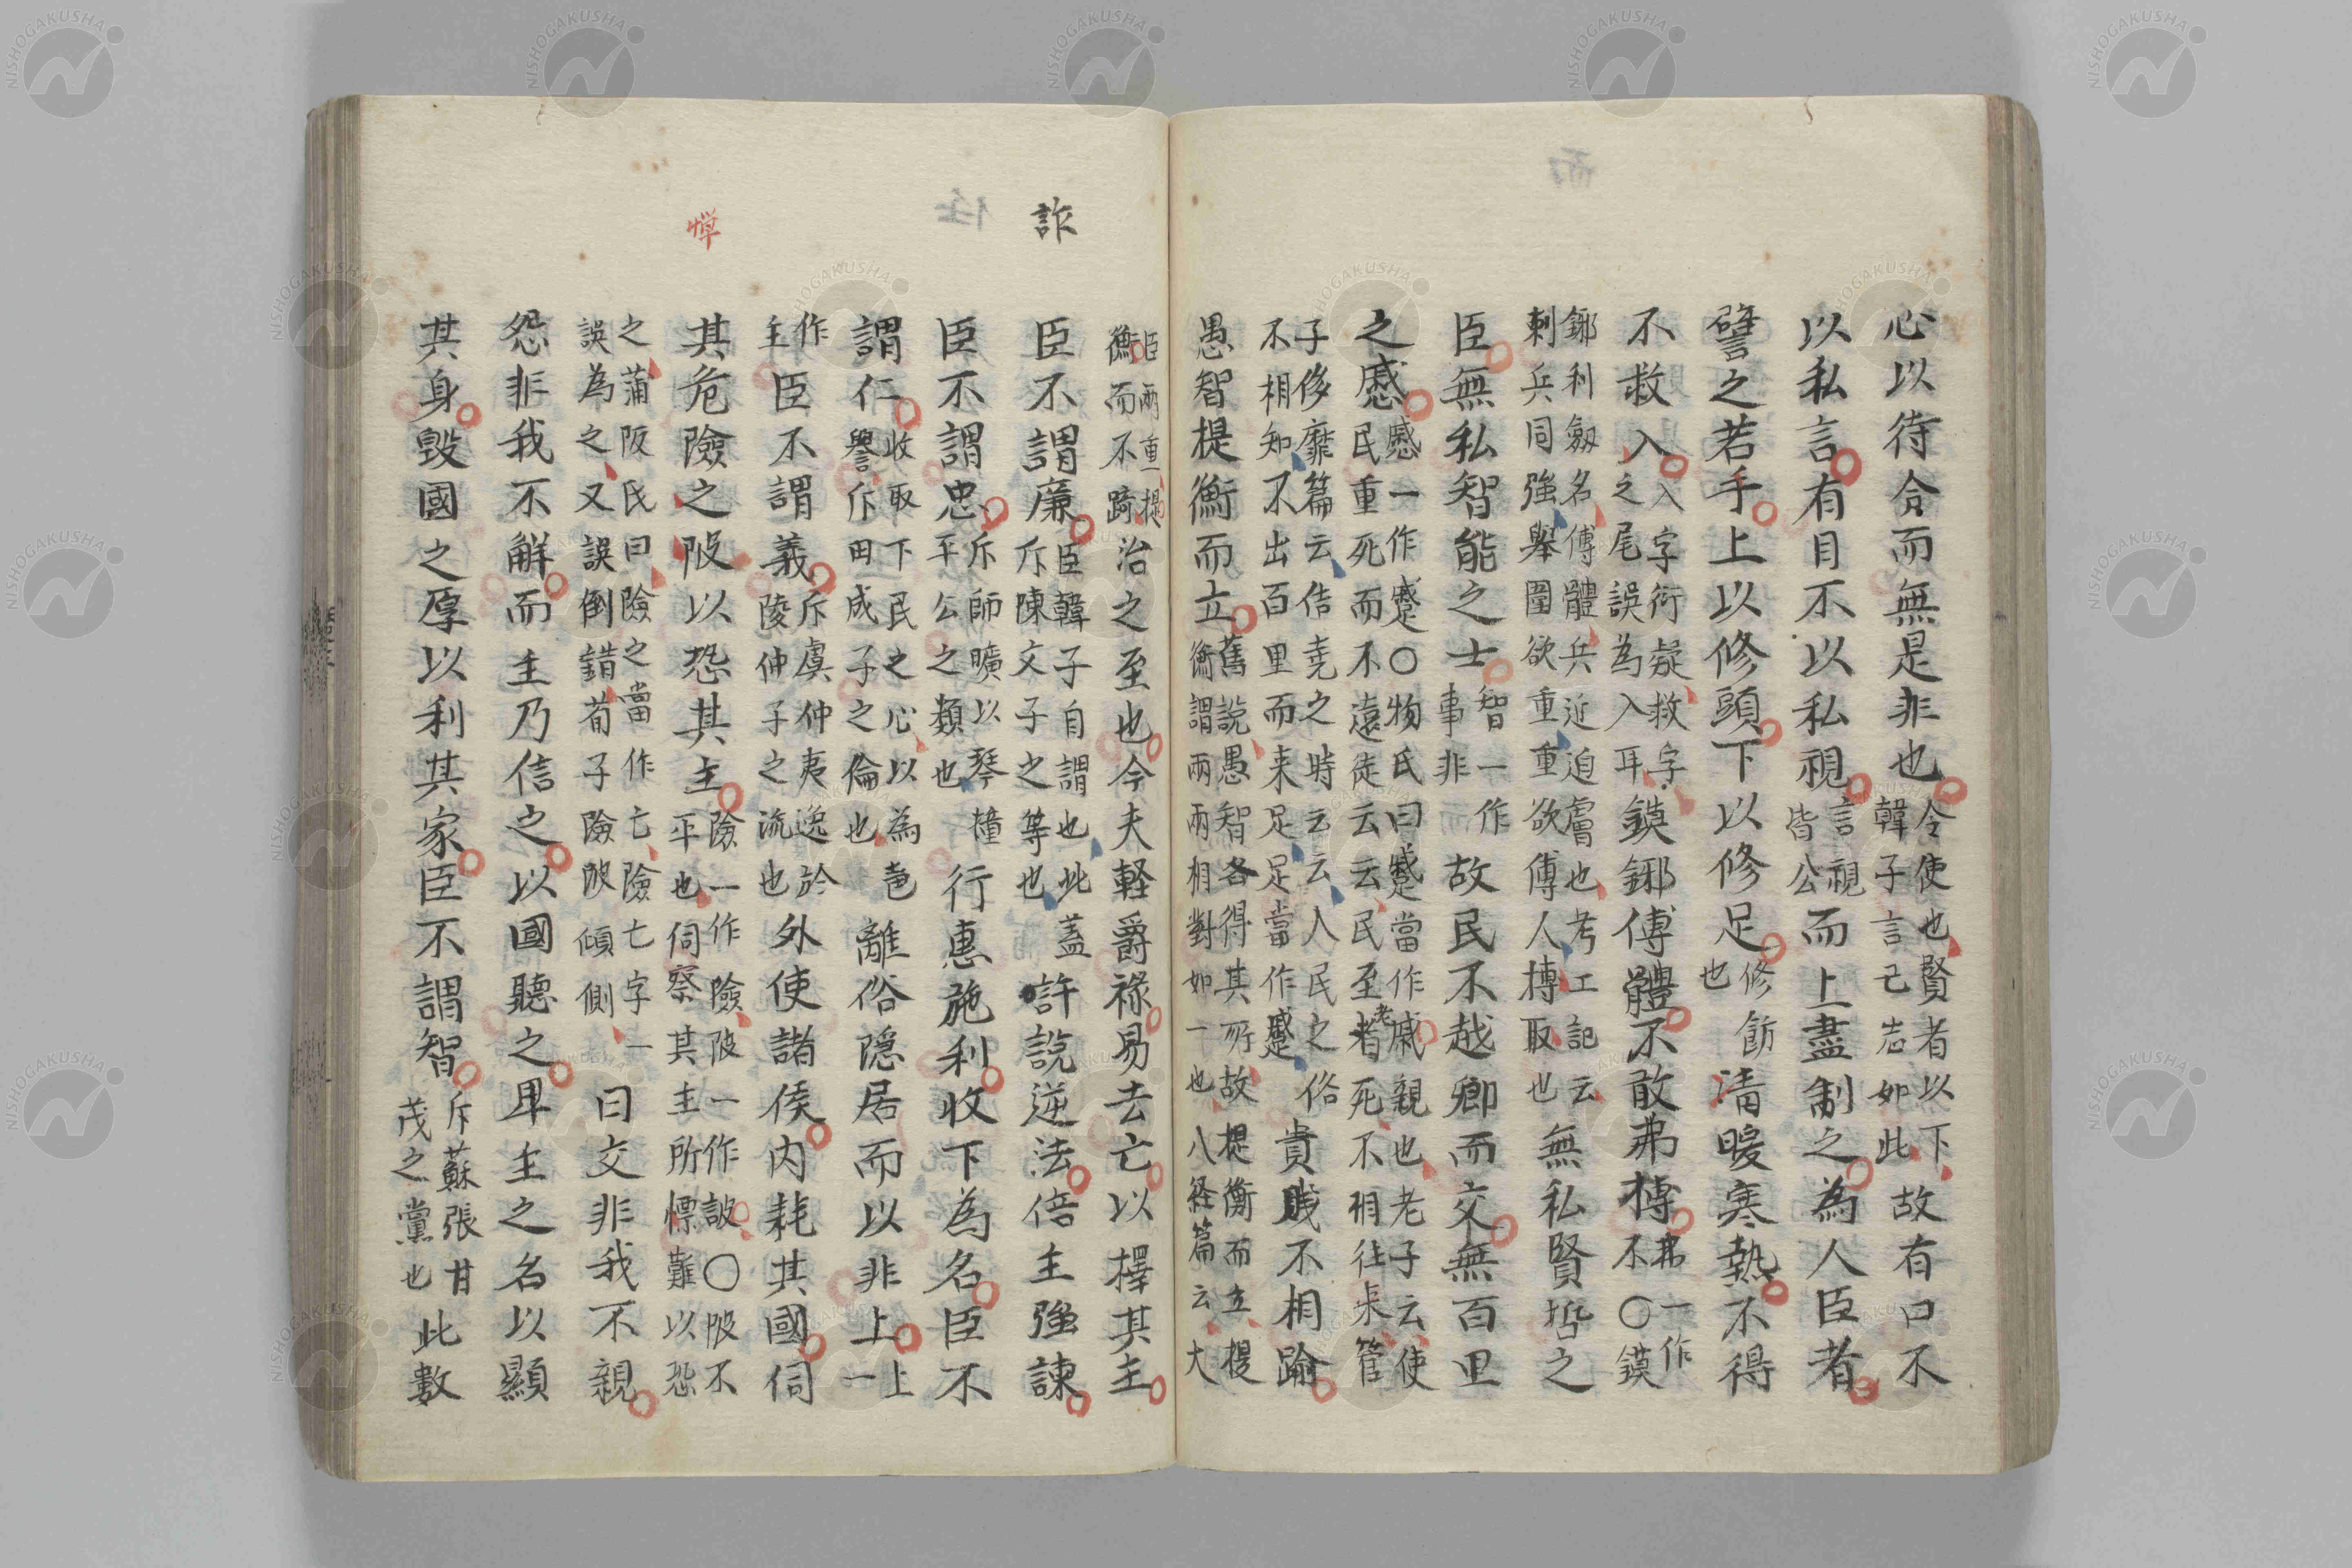 心以待令而無是非也令使也賢者以下韓子言己志如此故有口不
以私言有目不以私視言視皆公而上盡制之為人臣者
譬之若手上以修頭下以修足修飭也清暖寒熱不得
不救入入字衍疑救字之尾誤為入耳鏌鋣傅體不敢弗搏弗一作不〇鏌
鋣利劔名傅體兵近迫膚也考工記云刺兵同強舉圍欲重重欲傅人搏取也無私賢哲之
臣無私智能之士智一作事非故民不越鄉而交無百里
之慼慼一作蹙〇物氏曰蹙當作戚親也老子云使民重死而不遠徒云云民至老死不相往来管
子侈靡篇云佶堯之時云云人民之俗不相知不出百里而来足足當作蹙貴賎不相踰
愚智提衡而立舊說愚智各得其所故提衡而立提衡謂兩兩相對如一也八経篇云大
臣兩重提衡而不踦治之至也今夫軽爵祿易去亡以擇其主
臣不謂廉臣韓子自謂也此蓋斥陳文子之等也許說逆法倍主強諫
詐
臣不謂忠斥師曠以琴撞平公之類也行惠施利收下為名臣不
謂仁收取下民之心以為譽斥田成子之倫也離俗隠居而以非上上一
作主臣不謂義斥虞仲夷逸於陵仲子之流也外使諸侯内耗其國伺
其危險之陂以恐其主險一作險陂一作詖〇陂不平也伺察其主所慓難以恐
之蒲阪氏曰險之當作亡險亡字一誤為之又誤倒錯荀子險陂傾側曰交非我不親
怨非我不解而主乃信之以國聽之卑主之名以顯
其身毀國之厚以利其家臣不謂智斥蘇張甘茂之黨也此數
NISHOGAKUSHA